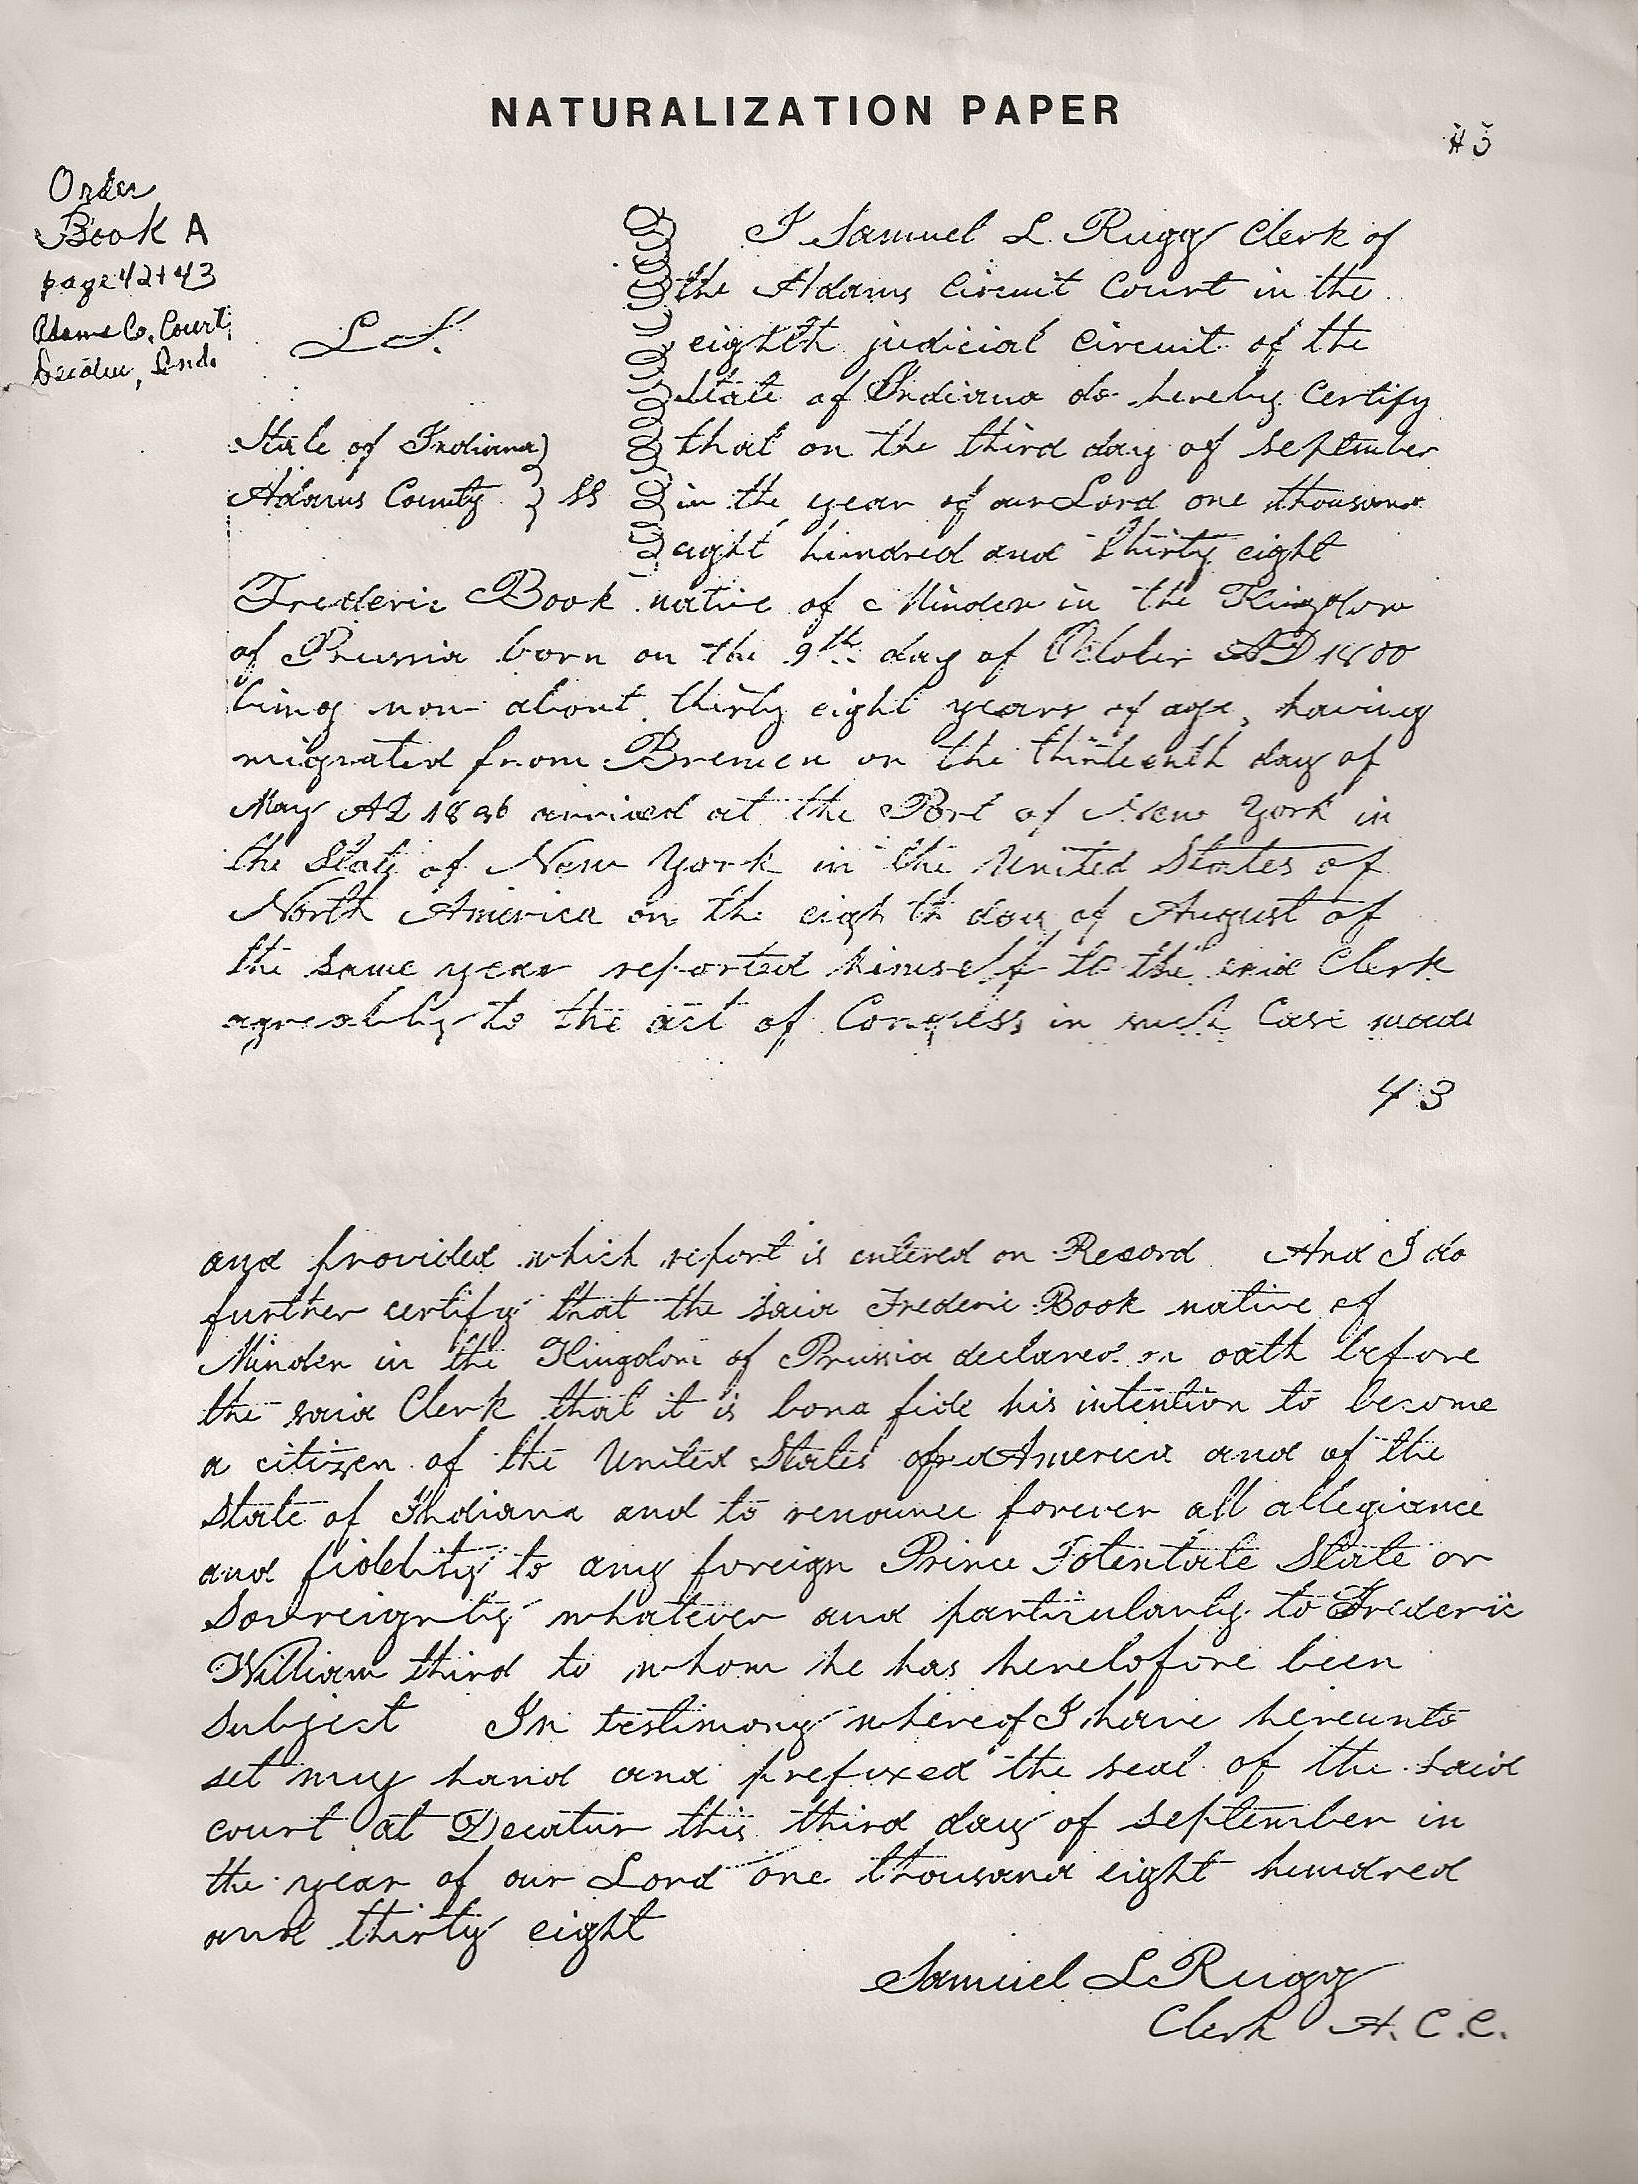 NATURALIZATION PAPER
#3
Order
Book A
page 42+43
Adams Co. Court,
Ind.
L S.
State of Indiana }
Adams County } SS
I Samuel L. Rugg Clerk of
the Adams Circuit Court in the
eighth judicial circuit of the
State of Indiana do hereby Certify
that on the third day of September
in the year of our Lord one thousand
eight hundred and thirty eight
Frederic Book native of Minden in the Kingdom
of Prussia born on the 9th day of October AD 1800
being now about thirty eight years of age, having
migrated from Bremen on the thirteenth day of
May AD arrived at the Port of New York in
the State of New York in the United States of
North America on the eighth day of August of
the same year reported himself to the said Clerk
agreeably to the act of Congress in such Case made
43
and provided which report is entered on Record And I do
further certify that the said Frederic Book native of
Minden in the Kingdom of Prussia declared on oath before
the said Clerk that it is bona fide his intention to become
a citizen of the United States of America and of the
State of Indiana and to renounce forever all allegiance
and fidelity to any foreign Prince Potentate State or
Sovreignty whatever and particularly to Frederic
William third to whom he has heretofore been
subject In testimony whereof I have hereunto
set my hand and prefixed the seal of the said
court at Decatur this third day of September in
the year of our Lord one thousand eight hundred
and thirty eight
Samuel L Rugg
Clerk A. C. C.